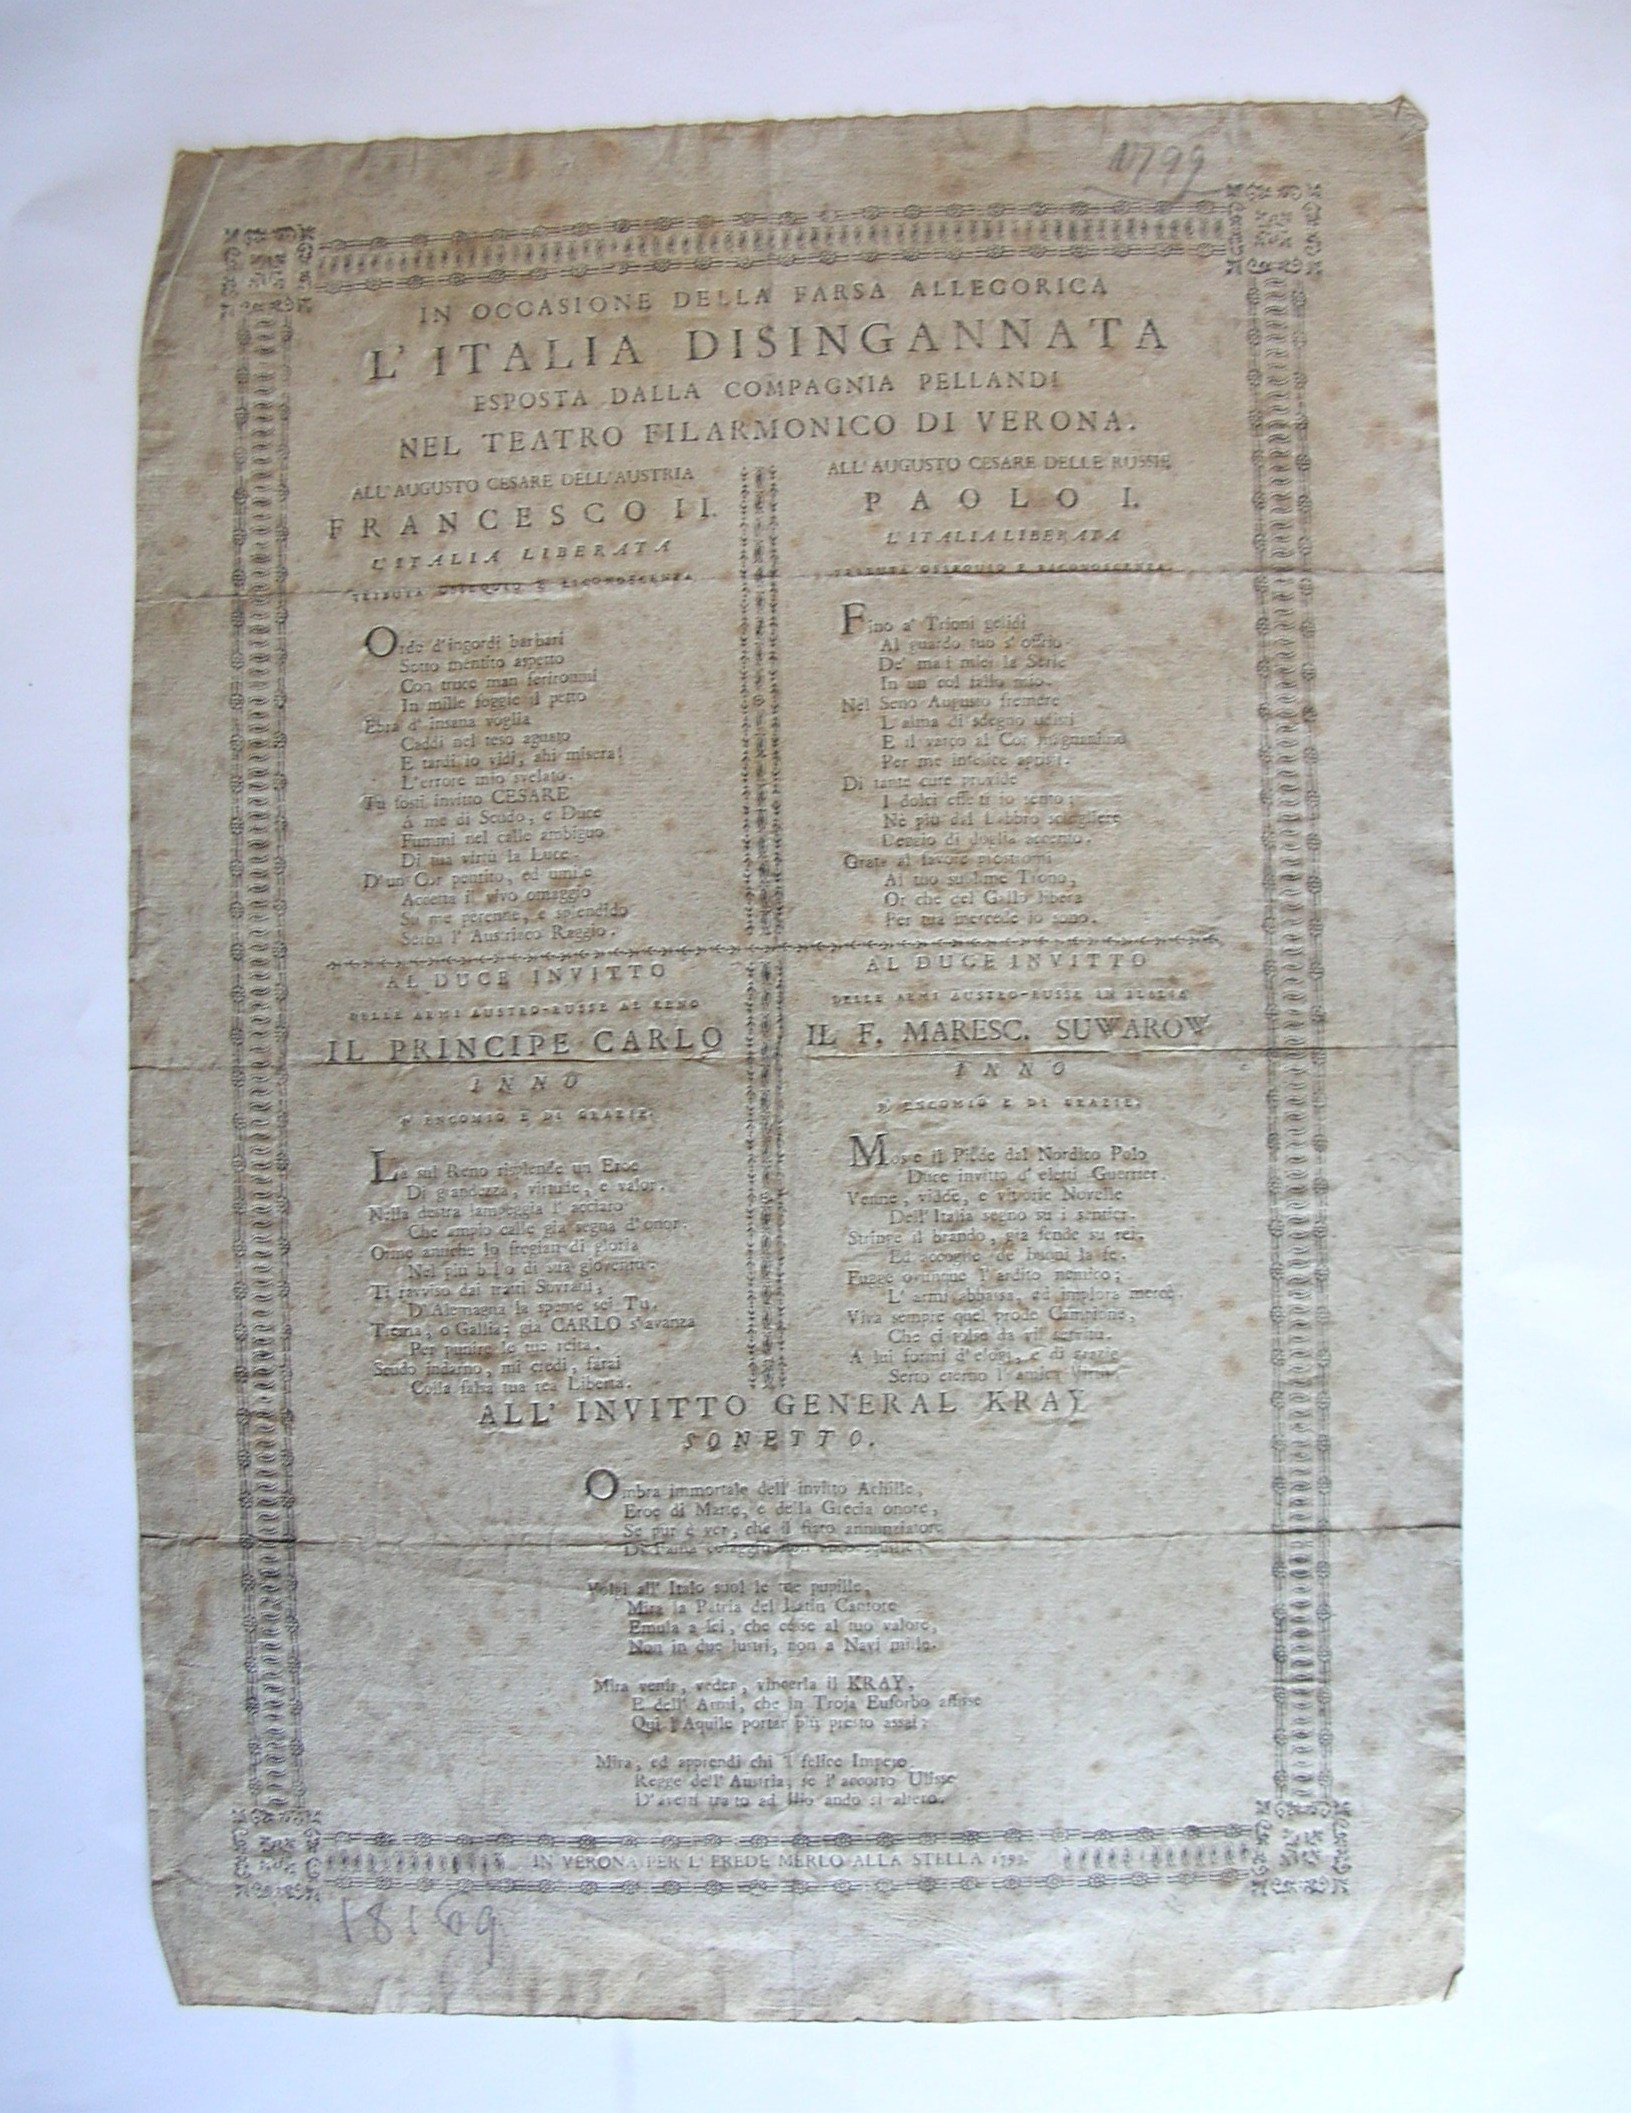 1799
IN OCCASIONE DELLA FARSA ALLEGORICA
L'ITALIA DISINGANNATA
ESPOSTA DALLA COMPAGNIA PELLANDI
NEL TEATRO FILARMONICO DI VERONA.
ALL'AUGUSTO CESARE DELL'AUSTRIA
FRANCESCO II.
L'ITALIA LIBERATA
TRIBUTA OSSEQUIO E RICONOSCENZA
Orde d'ingordi barbari
Sotto mentito aspetto
Con truce man ferironmi
In mille foggie il petto
Ebra d'insana voglia
Caddi nel teso aguato
E tardi io vidi, ahi misera!
L'errore mio svelato.
Tu fosti invitto CESARE
A me di Scudo, e Duce
Fummi nel calle ambiguo
Di tua virtu la Luce.
D'un Cor pentito, ed umile
Accetta il vivo omaggio
Su me perenne, e splendido
Serba l'Austriaco Raggio.
ALL'AUGUSTO CESARE DELLE RUSSIE
PAOLO I.
L'ITALIA LIBERATA
TRIBUTA OSSEQUIO E RICONOSCENZA.
Fino a' Trioni gelidi
Al guardo tuo s'offrio
De' mai miei la Serie
In un col fallo mio.
Nel Seno Augusto fremere
L'alma di sdegno udisti
E il varco al Cor magnanimo
Per me infelice apristi.
Di tante cure provide
I dolci effetti io sento;
Nè più dal Labbro sciogliere
Deggio di doglia accento.
Grata al favore prostromi
Al tuo sublime Trono,
Or che del Gallo libera
Per tua mercede io sono.
AL DUCE INVITTO
DELLE ARMI AUSTRO-RUSSE AL RENO
IL PRINCIPE CARLO
INNO
D'ENCOMIO E DI GRAZIE.
Là sul Reno risplende un Eroe
Di grandezza, virtude, e valor.
Nella destra lampeggia l'acciaro
Che ampio calle già segna d'onor.
Orme antiche lo fregian di gloria
Nel più bello di sua gioventù:
Ti ravviso dai tratti Sovrani,
D'Alemagna la speme sei Tu.
Trema, o Gallia; già CARLO s'avanza
Per punire le tue
Scudo indarno, mi credi, farai
Colla falsa tua rea Libertà.
AL DUCE INVITTO
DELLE ARMI AUSTRO-RUSSE IN ITALIA
IL F. MARESC. SUWAROW
INNO
D'ENCOMIO E DI GRAZIE.
Move il Piede dal Nordico Polo
Duce invitto d'eletti Guerrier.
Venne, vidde, e vittorie Novelle
Dell'Italia segnò su i sentier.
Stringe il brando, già fende su rei,
Ed accoglie de' buoni la fe.
Fugge ovunque l'ardito nemico;
L'armi abbassa, ed implora mercè.
Viva sempre quel prode Campione,
Che ci tolse da vil servitù.
A lui formi d'elogi, e di grazie
Serto eterno l'amica Virtù.
ALL'INVITTO GENERAL KRAY
SONETTO.
Ombra immortale dell'invitto Achille,
Eroe di Marte, e della Grecia onore,
Se pur è ver, che il fiero annunziatore
Di Fama
Volgi all'Italo suol le tue pupille,
Mira la Patria del Latin Cantore
Emula a lei, che cesse al tuo valore,
Non in due lustri, non a Navi mille.
Mira venir, veder, vincerla il KRAY,
E dell'Armi, che in Troja Euforbo affisse
Quì l'Aquile portar più presto assai:
Mira, ed apprendi chi 'l felice Impero
Regge dell'Austria, se l'accorto Ulisse
D'averti tratto ad Ilio andò sì altero.
IN VERONA PER L'EREDE MERLO ALLA STELLA 1799.
18169